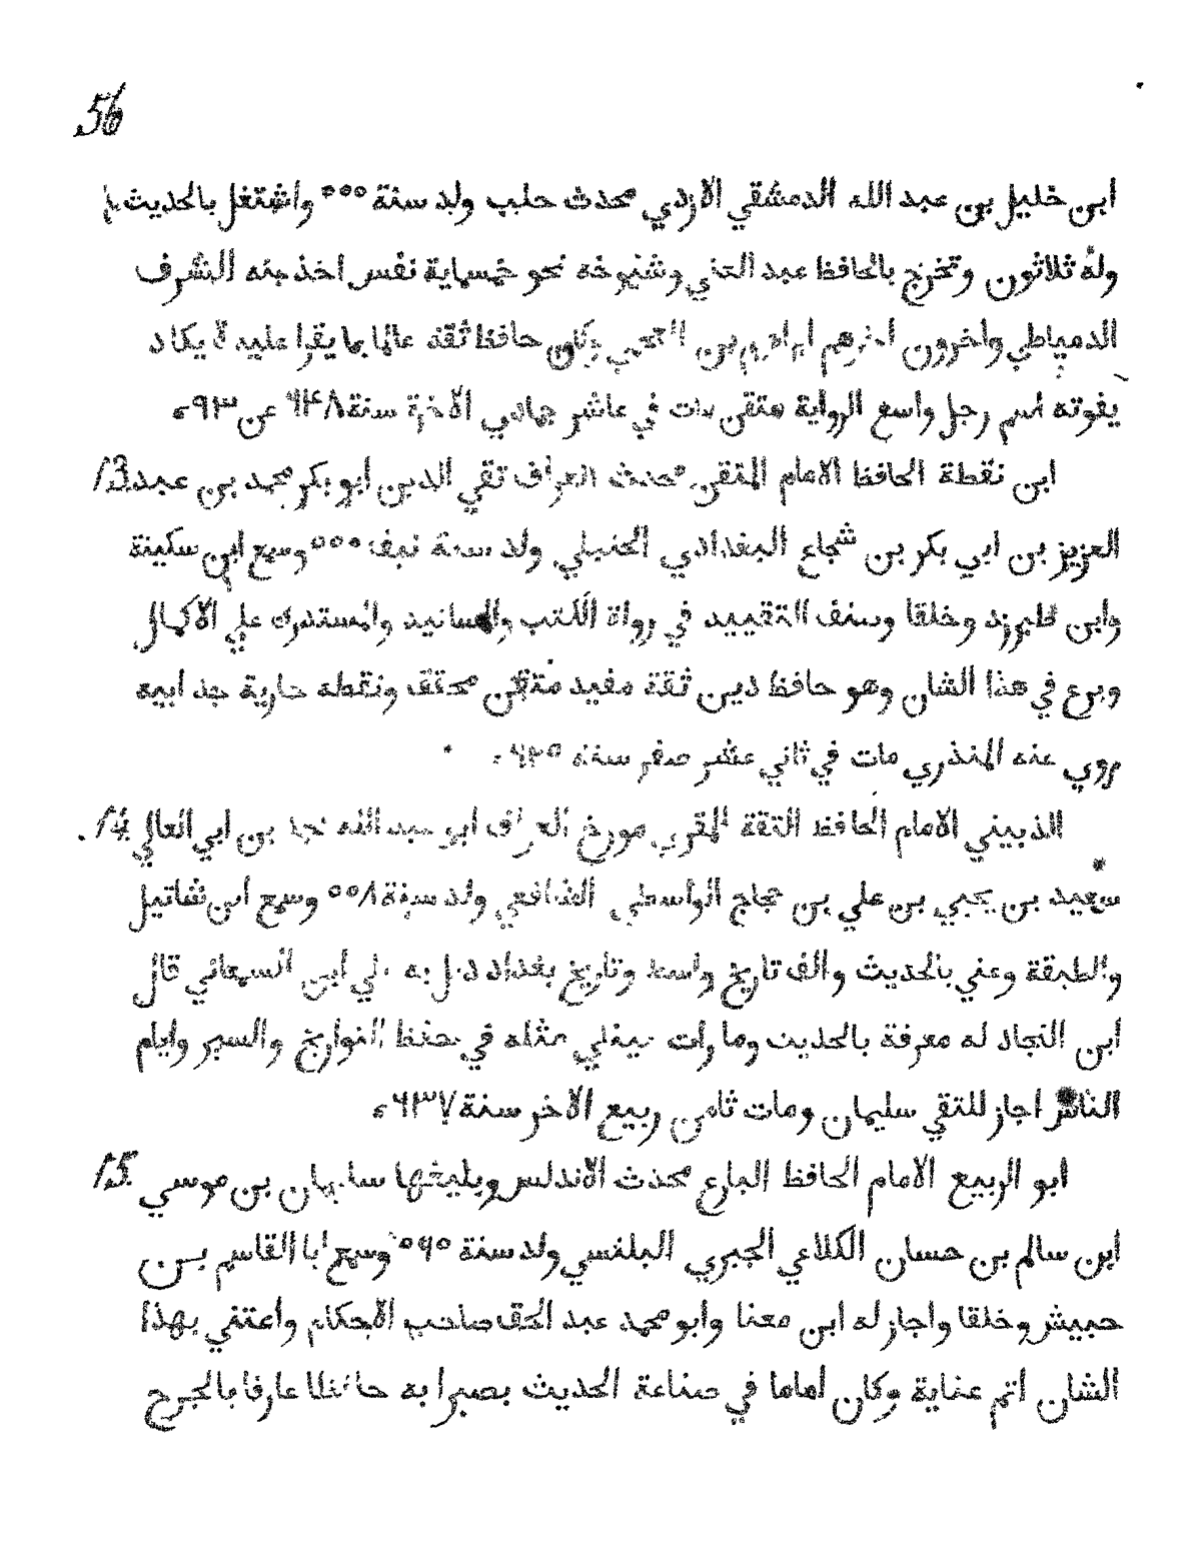 56
ابن خليل بن عبد الله الدمشقي الازدي محدث حلب ولد سنة ٥٥٥ واشتغل بالحديث
وله ثلاثون وتخرج بالحافظ عبد الغني وشيوخه نحو خمساية نفس اخذ عنه الشرف
الدمياطي واخرون اخرهم ابراهيم بن العجمي وكان حافظا ثقة عالما بما يقرا عليه لا يكاد
يفوته اسم رجل واسع الرواية متقن مات في عاشر جمادي الاخرة سنة ٦٤٨ عن ٩٣ه
13. ابن نقطة الحافظ الامام المتقن محدث العراف تقي الدين ابو بكر محمد بن عبد
العزيز بن ابي بكر بن شجاع البغدادي الحنبلي ولد سنة نيف ٥٥٠ وسمع ابن سكينة
وابن طبرزد وخلقا وصنف التقييد في رواة الكتب والمسانيد والمستدرك علي الاكمال
وبرع في هذا الشان وهو حافظ دين ثقة مفيد متقن محقق ونقطه جارية جد ابيه
روي عنه المنذري مات في ثاني عشر صفر سنة
14. الذبيثي الامام الحافظ الثقة المقري مورخ العراف ابو عبد الله محمد بن ابي العالي
سعيد بن يحيي بن علي بن حجاج الواسطي الشافعي ولد سنة ٥٥٨ وسمع ابن شاتيل
والطبقة وعني بالحديث والف تاريخ واسط وتاريخ بغداد ذيل به علي ابن السمعاني قال
ابن النجاد له معرفة بالحديث وما رات عيني مثله في حفظ التواريخ والسير وايام
الناس اجاز للتقي سليمان ومات ثامن ربيع الاخر سنة ٦٣٧ه
15. ابو الربيع الامام الحافظ البارع محدث الاندلس وبليغها سليمان بن موسي
ابن سالم بن حسان الكلاعي الجبري البلنسي ولد سنة ٥٦٥ وسمع ابا القاسم بن
حبيش وخلقا واجاز له ابن معنا وابو محمد عبد الحق صاحب الاحكام واعتني بهذا
الشان اتم عناية وكان اماما في صناعة الحديث بصيرا به حافظا عارفا بالجرح